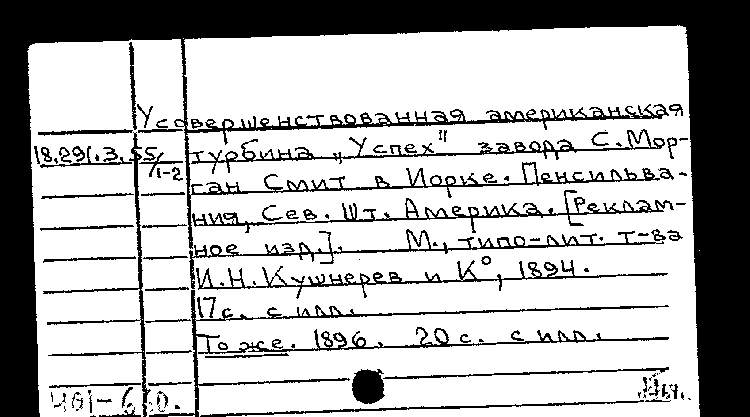 Усовершенствованная американская
18.291.3.55/1-2 турбина „Успех" завода С. Мор-
ган Смит в Иорке. Пенсильва-
ния, Сев. Шт. Америка. [Реклам-
ное изд.]. М., типо-лит. т-ва
И.Н. Кушнерев и К°, 1894.
17 с. с илл.
То же. 1896. 20 с. с илл.